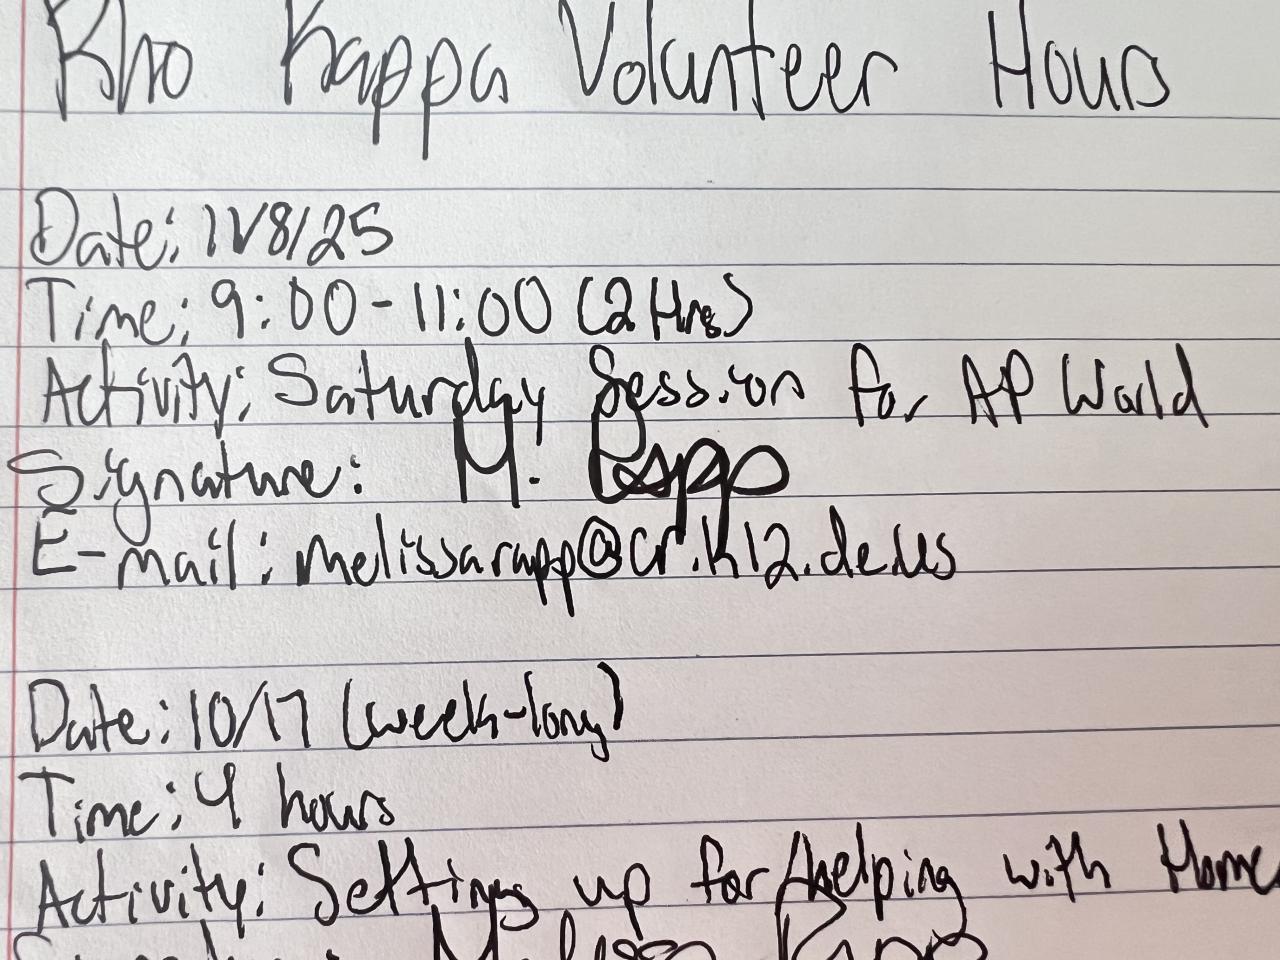 Rho Kappa Volunteer Hours
Date: 11/8/25
Time: 9:00-11:00 (2 Hrs)
Activity: Saturday Session for AP World
Signature: M. Rapp
E-mail: melissarapp@cr.k12.de.us
Date: 10/17 (week-long)
Time: 4 hours
Activity: Setting up for/helping with Home
Signature: Melissa Rapp